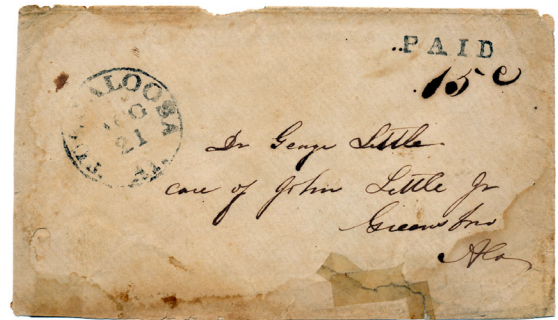 PAID
15c
TUSCALOOSA
21
Dr George Little
care of John Little Jr
Greensboro
Ala